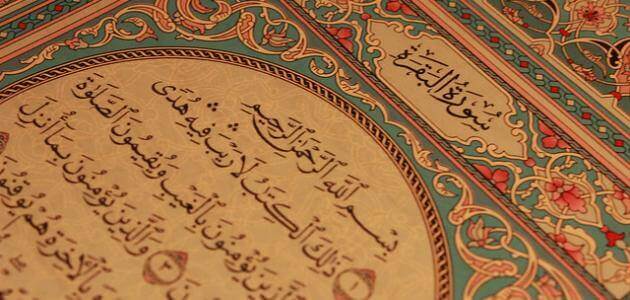 سُورَةُ البَقَرَةِ
بِسْمِ ٱللَّهِ ٱلرَّحْمَٰنِ ٱلرَّحِيمِ
١ ذَٰلِكَ ٱلْكِتَٰبُ لَا رَيْبَ ۛ فِيهِ ۛ هُدًى
ٱلَّذِينَ يُؤْمِنُونَ بِٱلْغَيْبِ وَيُقِيمُونَ ٱلصَّلَوٰةَ
٣ وَٱلَّذِينَ يُؤْمِنُونَ بِمَآ أُنزِلَ
وَبِٱلْأٓخِرَةِ هُمْ